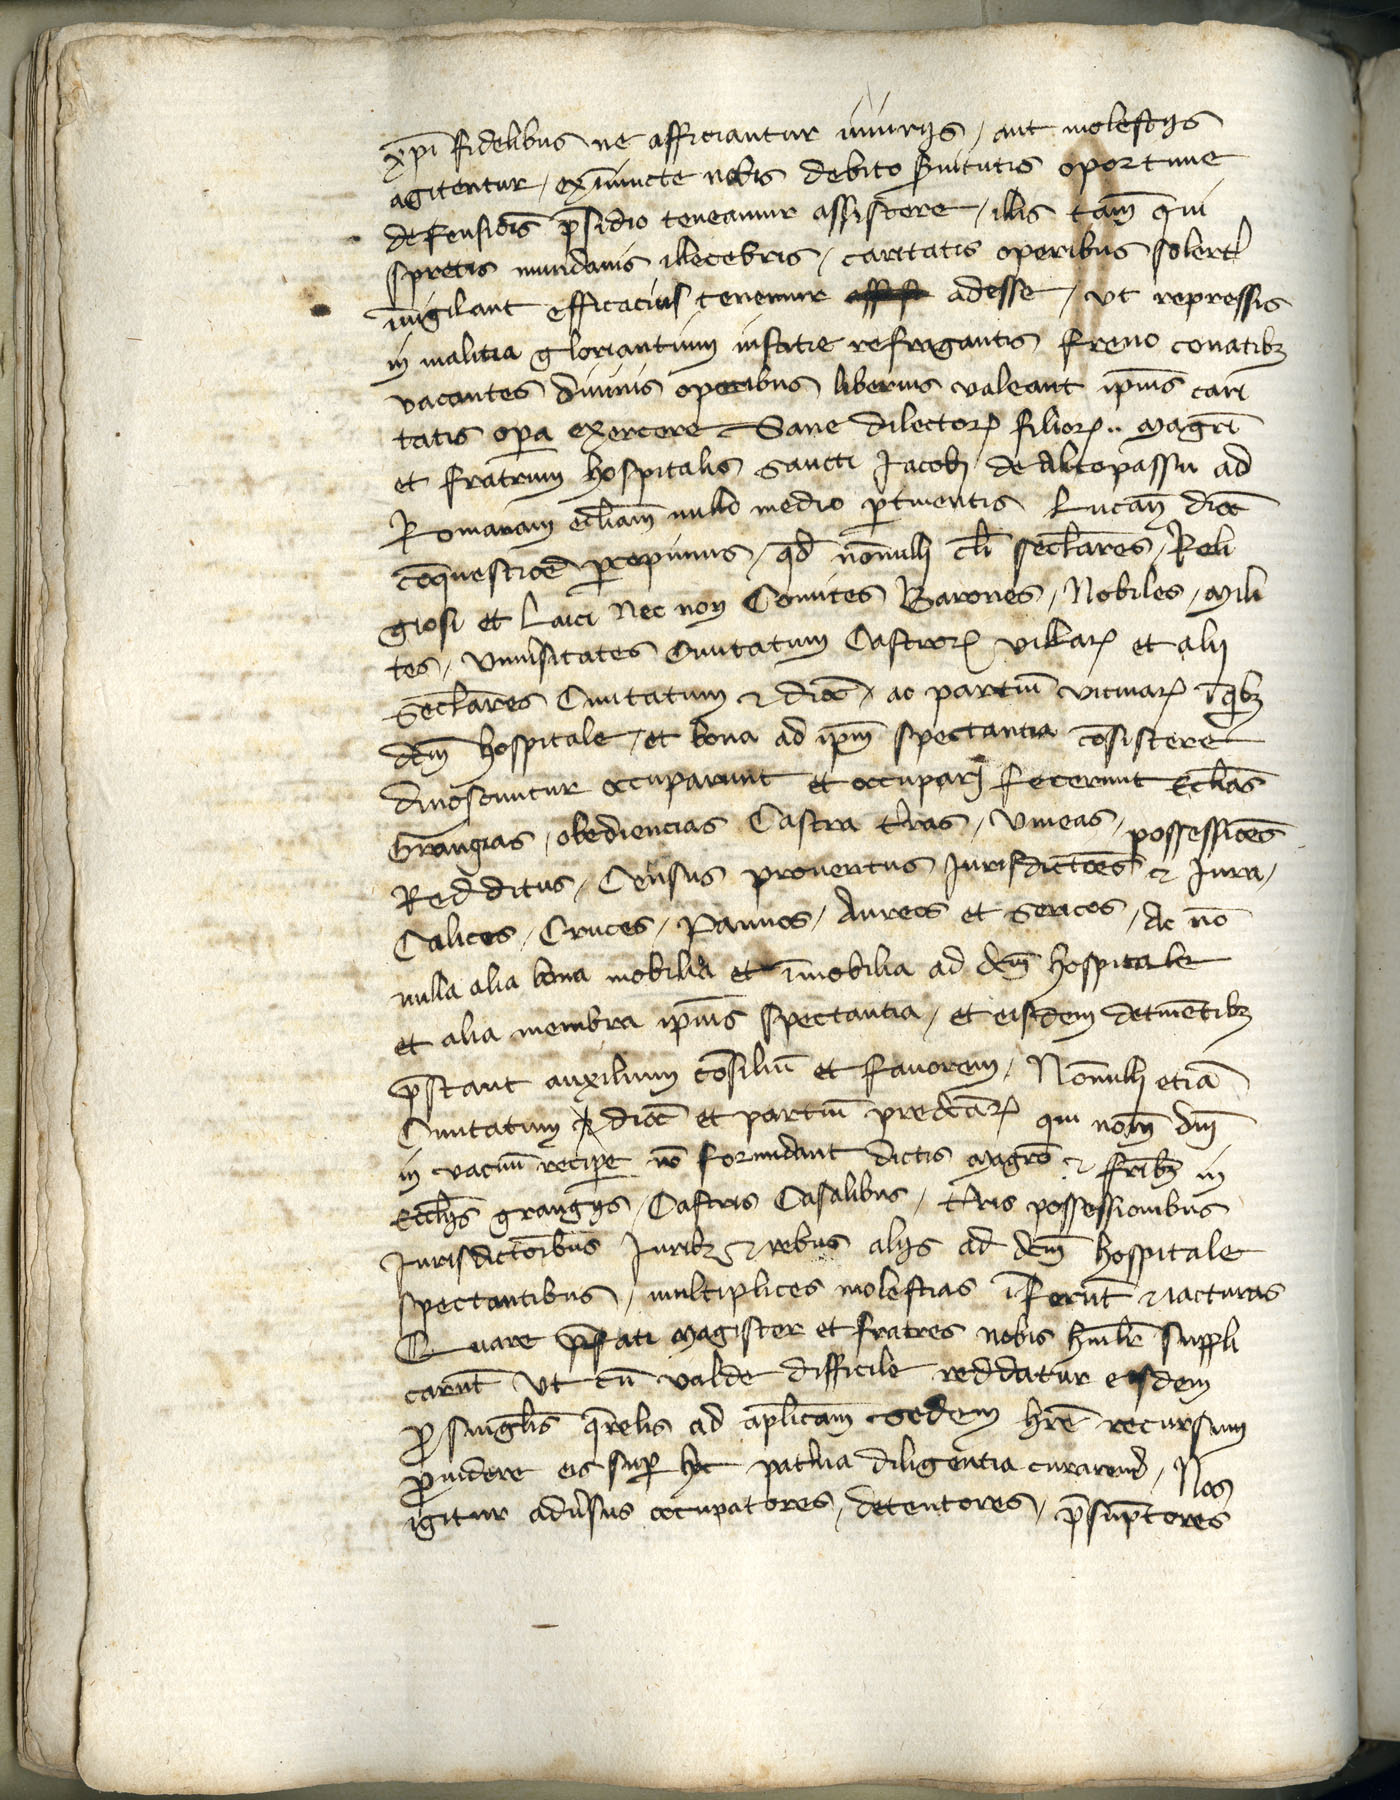 xp̄i fidelibus ne afficiantur iniurijs / aut molestijs
agitentur / ex iniuncte nobis debito s̄uitutis oportune
defensiōis p̄sidio teneamur assistere / illis tam̄ qui
spretis mundanis illecebris / caritatis operibus solert̄
inuigilant efficacius tenemur adesse / ut repressis
in malitia gloriantium iustitie refragantis freno conatibȝ
vacantes diuinis operibus liberius valeant ip̄ius cari
tatis op̄a exercere Sane dilectorꝝ filiorꝝ .. magr̄i
et fratrum hospitalis sancti Jacobi de Altopassu ad
Romanam eccl̄iam nullo medio ꝑtinentis Lucan̄ dioc̄
cōquestiōe ꝑcepimus / qd̄ nōnulli cl̄ici secl̄ares / Reli
giosi et Laici nec non Comites Barones / Nobiles / Mili
tes / vniu̓sitates Ciuitatum Castrorꝝ villarꝝ et alij
Secl̄ares Ciuitatum ⁊ dioc̄ / ac partiū vicinarꝝ ī qībȝ
dc̄m hospitale / et bona ad ip̄m spectantia cōsistere
dinoscuntur occuparunt et occuparj fecerunt Eccl̄ias
Grangias / obediencias Castra t̓ras / vineas / possessiōes
Redditus / Census prouentus Jurisdictiōes ⁊ Jura /
Calices / Cruces / Pannos / Aureos et Sericos / Ac nō
nulla alia bona mobilia et īmobilia ad dc̄m hospitale
et alia membra ip̄ius spectantia / et eisdem detinētibȝ
p̄stant auxilium cōsiliū et fauorem / Nōnulli etiā
Ciuitatum ⁊ dioc̄ et partiū predcārꝝ qui nom̄ dn̄i
in vacuū recipe̓ nō formidant dictis magr̄o ⁊ fr̄ibȝ in
Eccl̄ijs grangijs / Castris Casalibus / t̓ris possessionibus
Jurisdictiōibus Juribȝ ⁊ rebus alijs ad dc̄m hospitale
spectantibus / multiplices molestias īferūt ⁊ iacturas
Quare p̄fati magister et fratres nobis hūil̄r suppli
carūt ut cū valde difficile reddatur eisdem
ꝓ singl̄is q̄relis ad ap̄licam sedem hr̄e recursum
ꝓuidere eis suꝑ hoc pat̓na diligentia curarem̓ / Nos
igitur adu̓sus occupatores / detentores / p̄sūptores